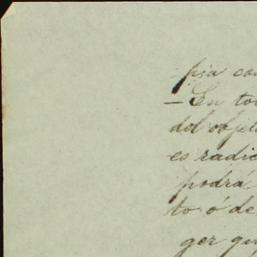 pia con
— En to
del obje
es radic
podrá
to ó de
ger qu